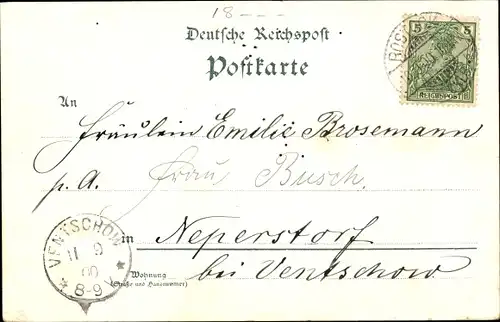 18---
Deutsche Reichspost
Postkarte
5 5
REICHSPOST
An
Fräulein Emilie Brosemann
p. A. Frau Busch.
in Neperstorf
bei Ventschow
Wohnung
(Straße und Hausnummer)
VENTSCHOW
11 9
00
* 8-9 V *